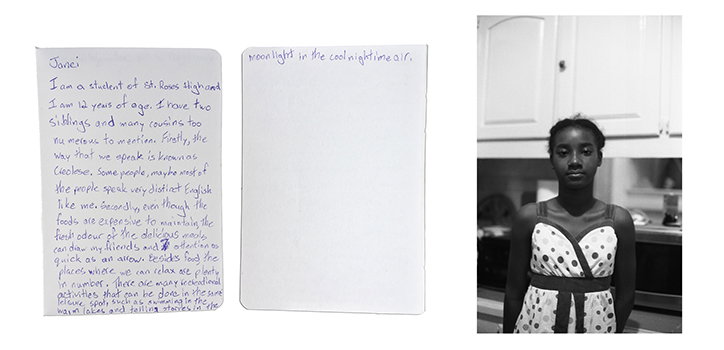 Janei
I am a student of St. Roses High and
I am 12 years of age. I have two
siblings and many cousins too
numerous to mention. Firstly, the
way that we speak is known as
Creolese. Some people, maybe most of
the people speak very distinct English
like me. Secondly, even though the
foods are expensive to maintain the
fresh odour of the delicious meals
can draw my friends and attention as
quick as an arrow. Besides food the
places where we can relax are plenty
in number. There are many recreational
activities that can be done in the same
leisure spot, such as swimming in the
warm lakes and telling stories in the
moonlight in the cool nightime air.